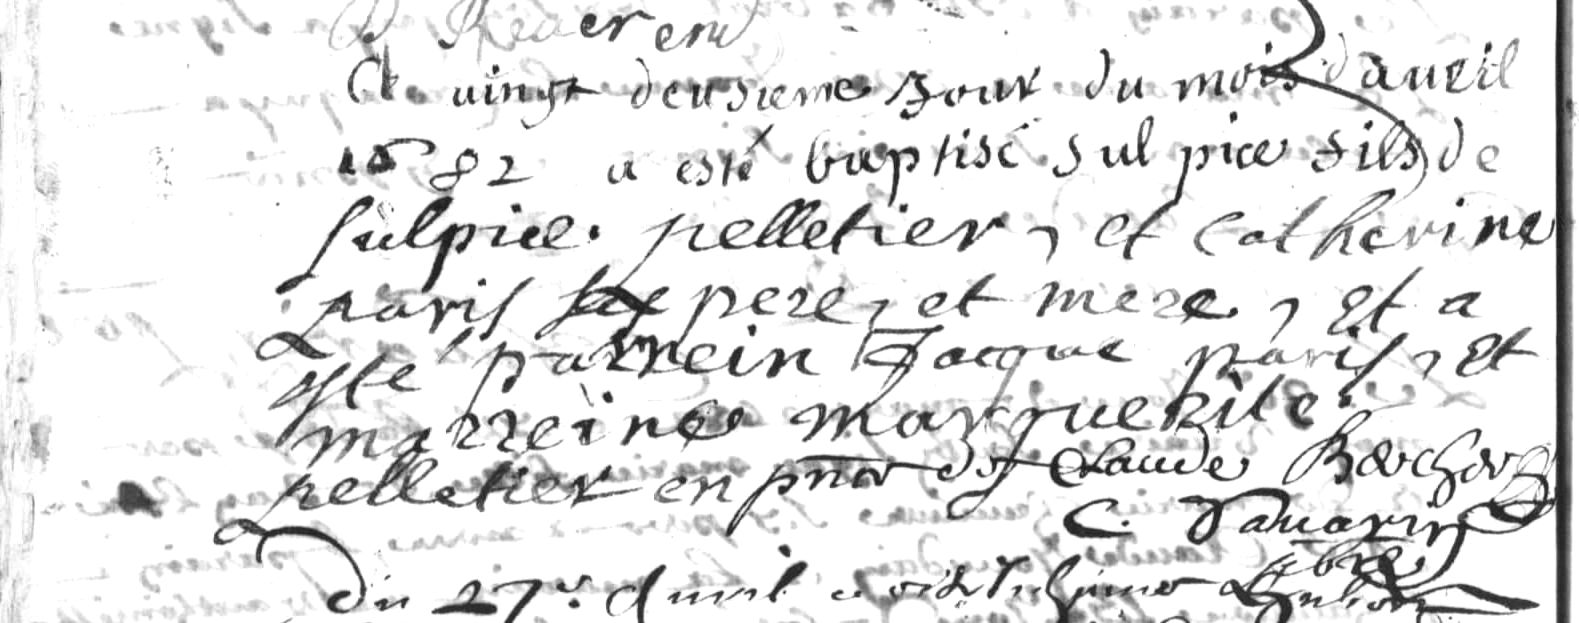 Reverend
Ce vingt deusieme Jour du mois daveril
1682 a esté baptisé Sulpice fils de
Sulpice pelletier, et Catherine
paris pere, et mere, Et a
esté parrein Jacque paris, Et
marreine marguerite
pelletier en pnce de Claude
C.
Du 27e Avril a esté